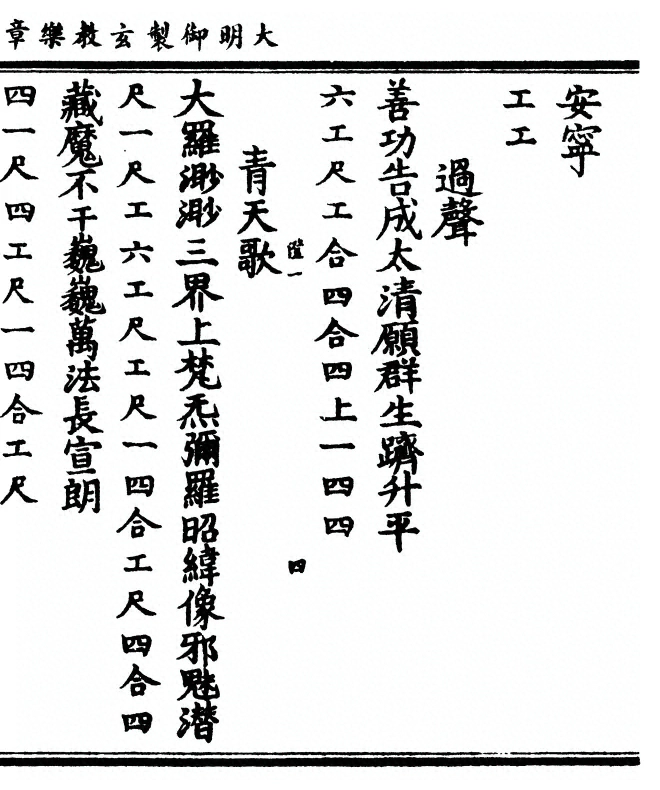 大明御製玄教樂章
安寧
工工
過聲
善功告成太清願群生躋升平
六工尺工合四合四上一四四
一 四
青天歌
大羅渺渺三界上梵炁彌羅昭緯像邪魅潛
尺一尺工六工尺工尺一四合工尺四合四
藏魔不干巍巍萬法長宣朗
四一尺四工尺一四合工尺